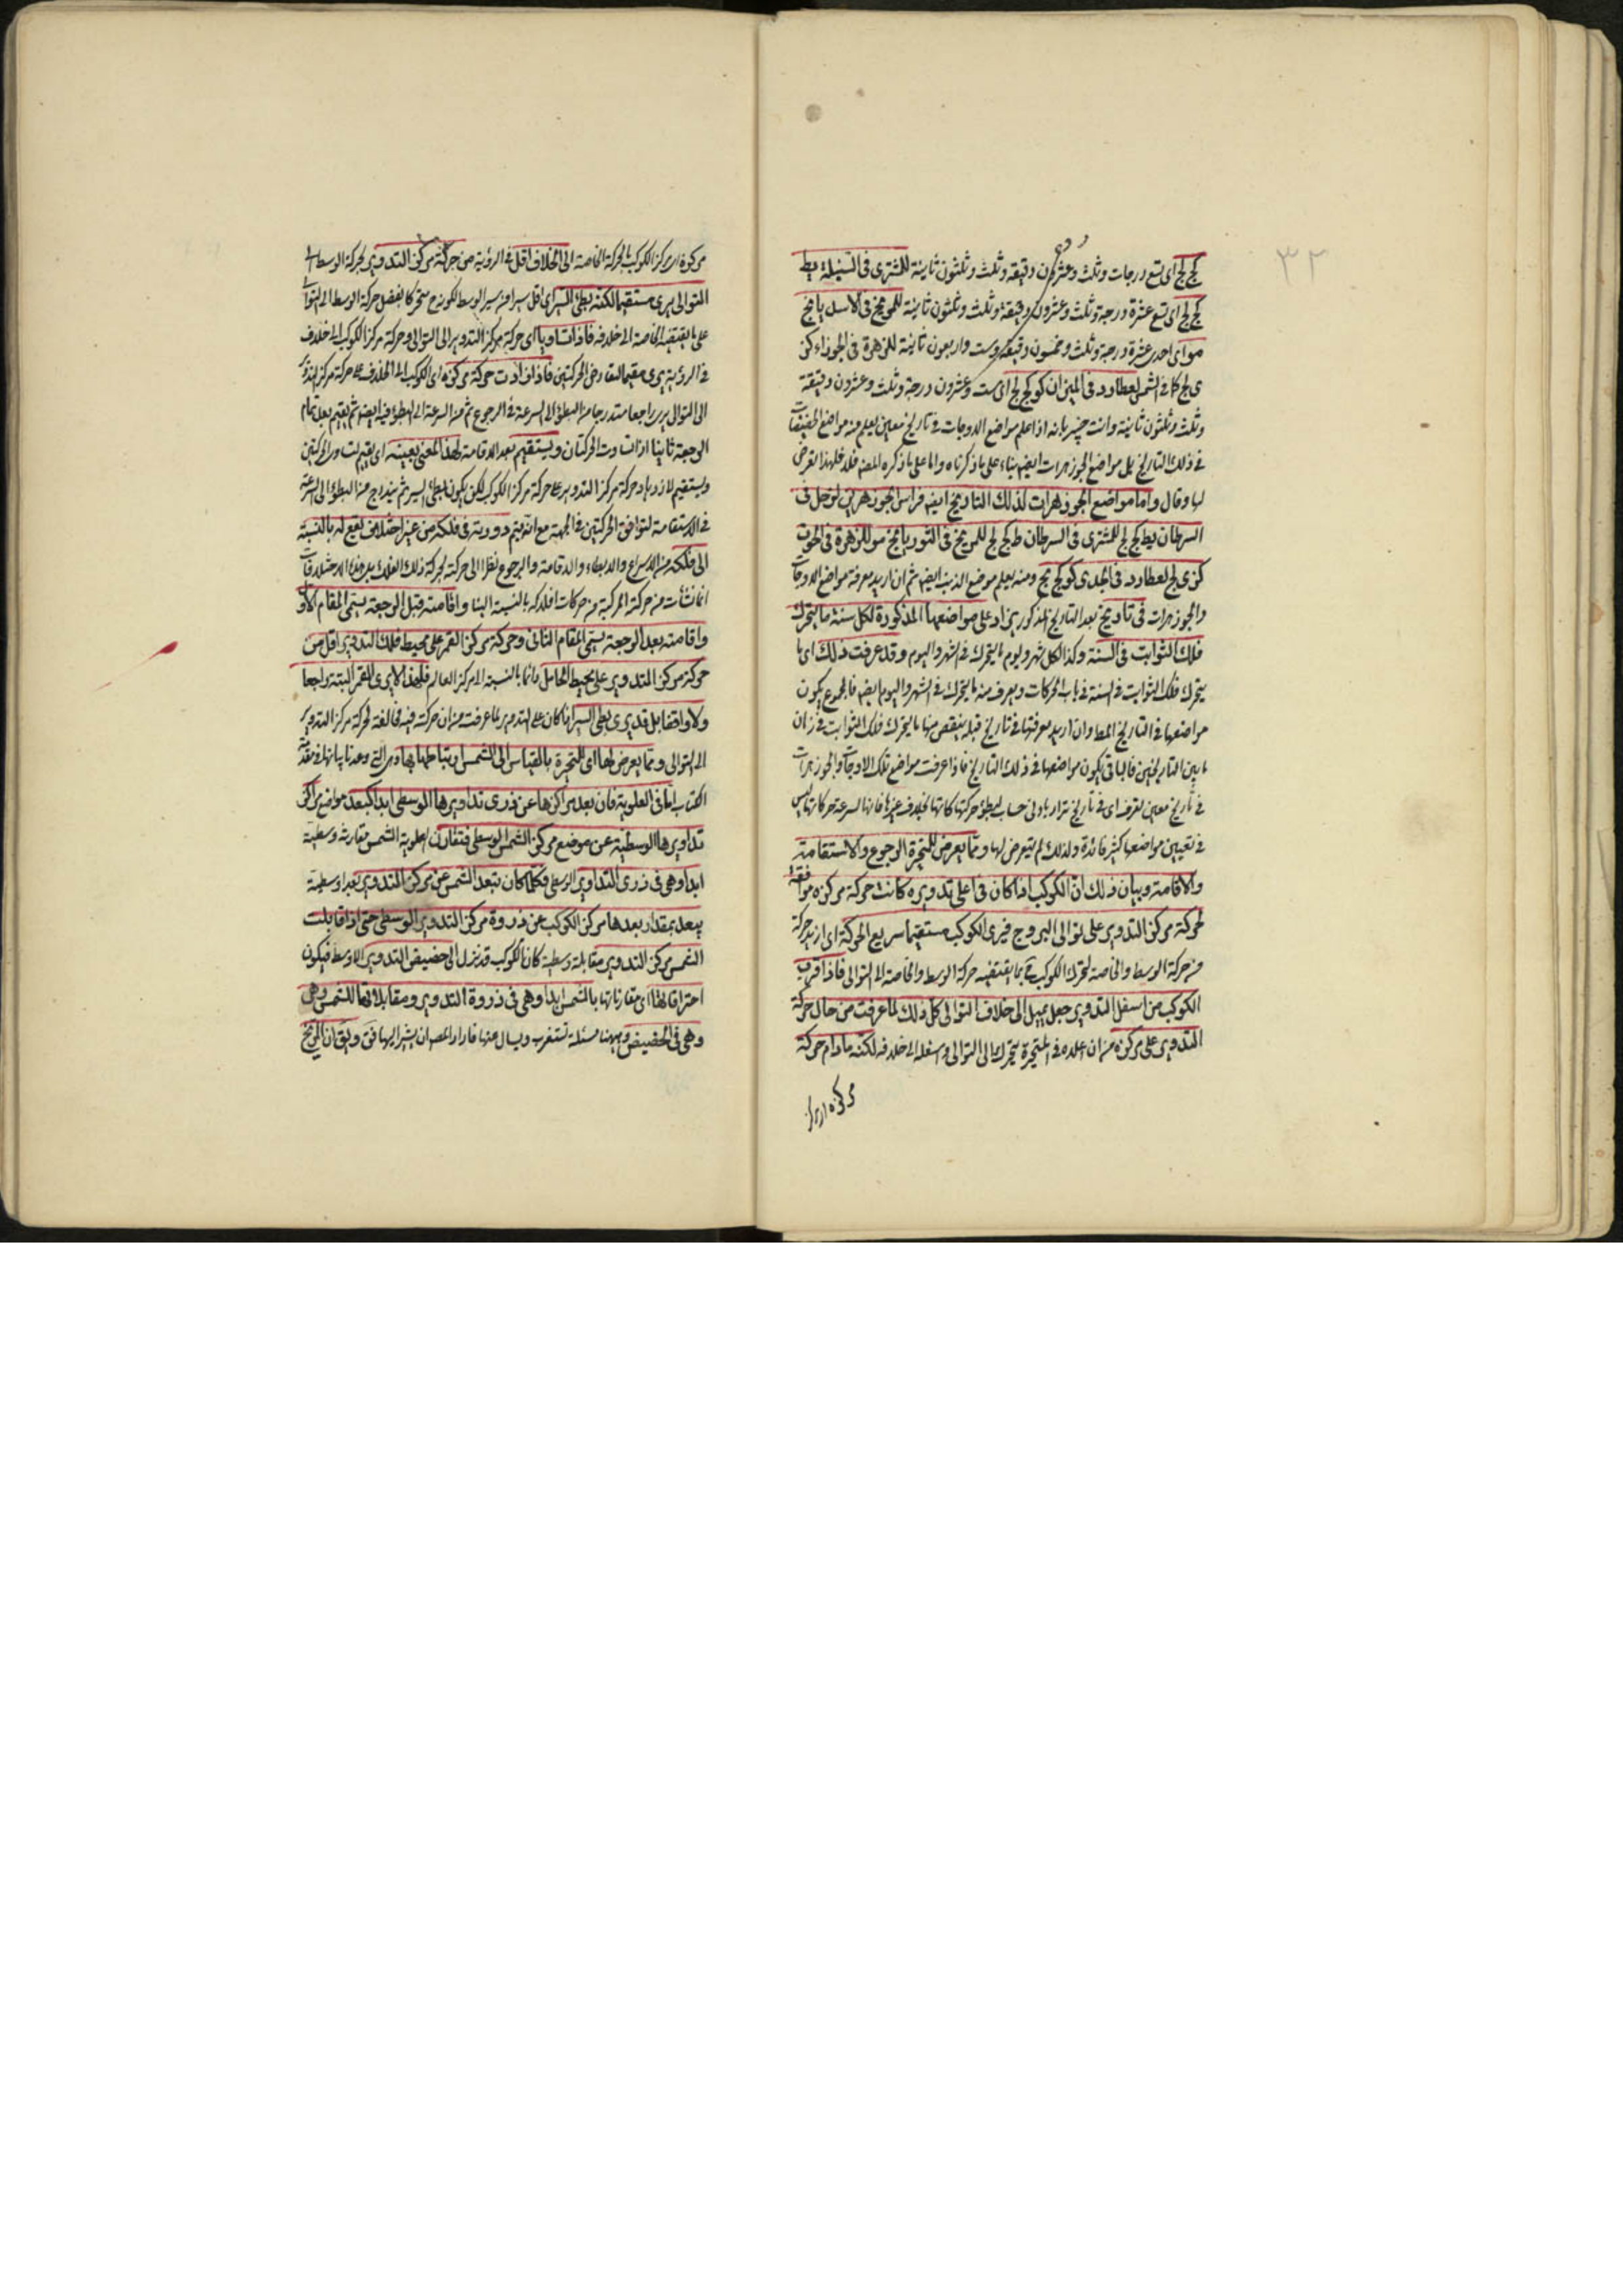 ٣٢
كج لج اى تسع درجات وثلث وعشرون دقيقة وثلث وثلثون ثانية للمشترى فى السنبلة يط
كج لج اى تسع عشرة درجة وثلث وعشرون دقيقة وثلث وثلثون ثانية للمريخ فى الاسد يا نج
مو اى احدى عشرة درجة وثلث وخمسون دقيقة وست واربعون ثانية للزهرة فى الجوزاء كز
ى لج كما فى الشمس لعطارد فى الميزان كو كج لج اى ست وعشرون درجة وثلث وعشرون دقيقة
وثلث وثلثون ثانية وانت خبير بانه اذا علم مواضع الاوجات فى تاريخ معين يعلم منه مواضع الحضيضات
فى ذلك التاريخ بل مواضع الجوزهرات ايضا بناء على ما ذكرناه واما على ما ذكره المصنف فلا فلهذا تعرض
لها وقال واما مواضع الجوزهرات لذلك التاريخ ايضا فراس الجوزهر لزحل فى
السرطان يط كج لج للمشترى فى السرطان ط كج لج للمريخ فى الثور يا نج مو للزهرة فى الحوت
كز ى لج لعطارد فى الجدى كو كج لج ومنه يعلم موضع الذنب ايضا ثم ان اريد معرفة مواضع الاوجات
والجوزهرات فى تاريخ بعد التاريخ المذكور يزاد على مواضعها المذكورة لكل سنة ما يتحرك
فلك الثوابت فى السنة وكذا لكل شهر ويوم ما يتحرك فى الشهر واليوم وقد عرفت ذلك اى ما
يتحرك فلك الثوابت فى السنة فى باب الحركات ويعرف منه ما يتحرك فى الشهر واليوم ايضا فالمجموع يكون
مواضعها فى التاريخ المعط وان اريد معرفتها فى تاريخ قبله ينقص منها ما يتحرك فلك الثوابت فى زمان
ما بين التاريخين فالباقى يكون مواضعها فى ذلك التاريخ فاذا عرفت مواضع تلك الاوجات والجوزهرات
فى تاريخ معين تعرف اى فى تاريخ تراد بادنى حساب لبطؤ حركتها كانها بخلاف غيرها فانها لسرعة حركاتها ليس
فى تعيين مواضعها كثير فائدة ولذلك لم يتعرض لها ومما يعرض للمتحيرة الرجوع والاستقامة
والاقامة وبيان ذلك ان الكوكب اذا كان فى اعلى تدويره كانت حركة مركزه موافقة
لحركة مركز التدوير على توالى البروج فيرى الكوكب مستقيما سريع الحركة اى ازيد حركة
من حركة الوسط والخاصة لتحرك الكوكب بما يقتضيه حركة الوسط والخاصة الى التوالى فاذا قرب
الكوكب من اسفل التدوير جعل يميل الى خلاف التوالى كل ذلك لما عرفت من حال حركة
التدوير على مركزه من ان اعلاه فى المتحيرة يتحرك الى التوالى واسفله الى خلافه لكنه مادام حركة
مركزه اى مركز
مركزه اى مركز الكوكب بالحركة الخاصة الى الخلاف اقل فى الرؤية من حركة مركز التدوير بحركة الوسط الى
التوالى يرى مستقيما لكنه بطئ السير اى اقل سيرا من سير الوسط لكونه متحركا بفضل حركة الوسط الى التوالى
على ما يقتضيه الخاصة الى خلافه فاذا تساويا اى حركة مركز التدوير الى التوالى وحركة مركز الكوكب الى خلاف
فى الرؤية يرى مقيما لتعارض الحركتين فاذا زادت حركة مركزه اى الكوكب الى الخلاف على حركة مركز التدوير
الى التوالى يرى راجعا متدرجا من البطؤ الى السرعة فى الرجوع ثم من السرعة الى البطؤ فيه ايضا ثم يقيم بعد تمام
الرجعة ثانيا اذا تساوت الحركتان ويستقيم بعد الاقامة لهذا المعنى بعينه اى يقيم لتساوى الحركتين
ويستقيم لازدياد حركة مركز التدوير على حركة مركز الكوكب لكن يكون بطئ السير ثم يتدرج من البطؤ الى السرعة
فى الاستقامة لتوافق الحركتين فى الجهة مع انه يتم دورته فى فلكه من غير اختلاف يقع له بالنسبة
الى فلكه من الاسراع والابطاء والاقامة والرجوع نظرا الى حركته بحركة ذلك الفلك بل هذه الاختلافات
انما نشأت من حركته المركبة من حركات افلاكه بالنسبة الينا واقامته قبل الرجعة يسمى المقام الاول
واقامته بعد الرجعة يسمى المقام الثانى وحركة مركز القمر على محيط فلك التدوير اقل من
حركة مركز التدوير على محيط الحامل دائما بالنسبة الى مركز العالم فلهذا لا يرى القمر البتة راجعا
ولا واقفا بل قد يرى بطئ السير اذا كان على التدوير لما عرفت من ان حركته فيه مخالفة لحركة مركز التدوير
الى التوالى ومما يعرض لها اى للمتحيرة بالقياس الى الشمس ارتباطها بها وهى التى وعدنا بيانها فى مقدمة
الكتاب اما فى العلوية فان بعد مراكزها عن ذرى تداويرها الوسطى ابدا كبعد مواضع مراكز
تداويرها الوسطية عن موضع مركز الشمس الوسطى فتقارن العلوية الشمس مقارنة وسطية
ابدا وهى فى ذرى التداوير الوسطى فكلما كان تبعد الشمس عن مركز التدوير بعدا وسطية
يبعد بمقدار بعدها مركز الكوكب عن ذروة مركز التدوير الوسطى حتى اذا قابلت
الشمس مركز التدوير مقابلة وسطية كان الكوكب قد نزل الى حضيض التدوير الاوسط فيكون
احتراقاتها اى مقارناتها بالشمس ابدا وهى فى ذروة التدوير ومقابلاتها للشمس وهى
وهى فى الحضيض وههنا مسئلة تستغرب ويسال عنها فاراد المص ان يشير اليها فق ويقال ان المريخ